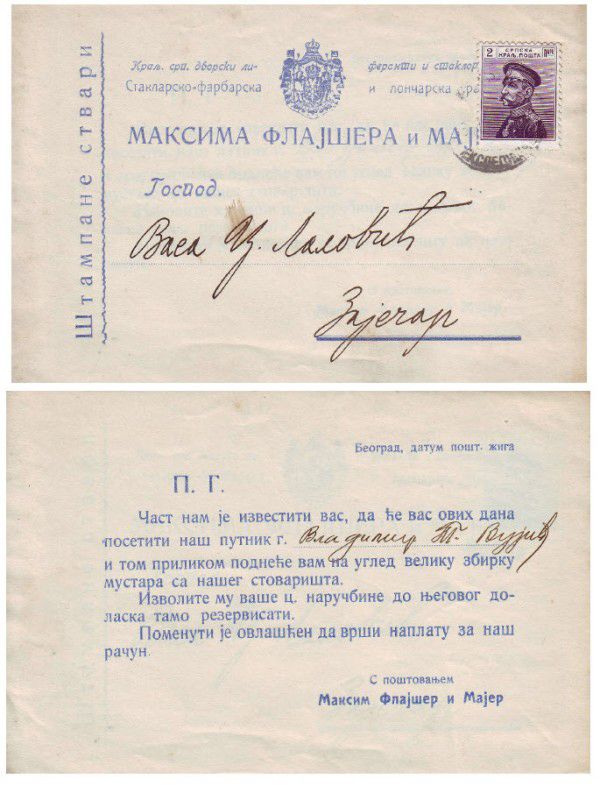 Штампане ствари
Краљ. срп. дворски ли- феранти и стаклор
Стакларско-фарбарска и лончарска ра
МАКСИМА ФЛАЈШЕРА и МАЈ
2 СРПСКА
КРАЉ. ПОШТА
Господ.
Васа Ц. Лаловић
Зајечар
Београд, датум пошт. жига
П. Г.
Част нам је известити вас, да ће вас ових дана
посетити наш путник г. Владимир Т. Вујић
и том приликом поднеће вам на углед велику збирку
мустара са нашег стоваришта.
Изволите му ваше ц. наручбине до његовог до-
ласка тамо резервисати.
Поменути је овлашћен да врши наплату за наш
рачун.
С поштовањем
Максим Флајшер и Мајер